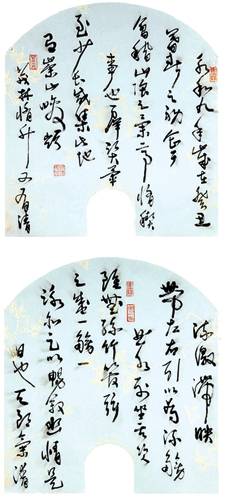 永和九年歲在癸丑
暮春之初會于
會稽山陰之蘭亭脩稧
事也群賢畢
至少長咸集此地
有崇山峻領
茂林脩竹又有清
流激湍映
帶左右引以為流觴
曲水列坐其次
雖無絲竹管弦
之盛一觴一
詠亦足以暢敘幽情是
日也天朗氣清